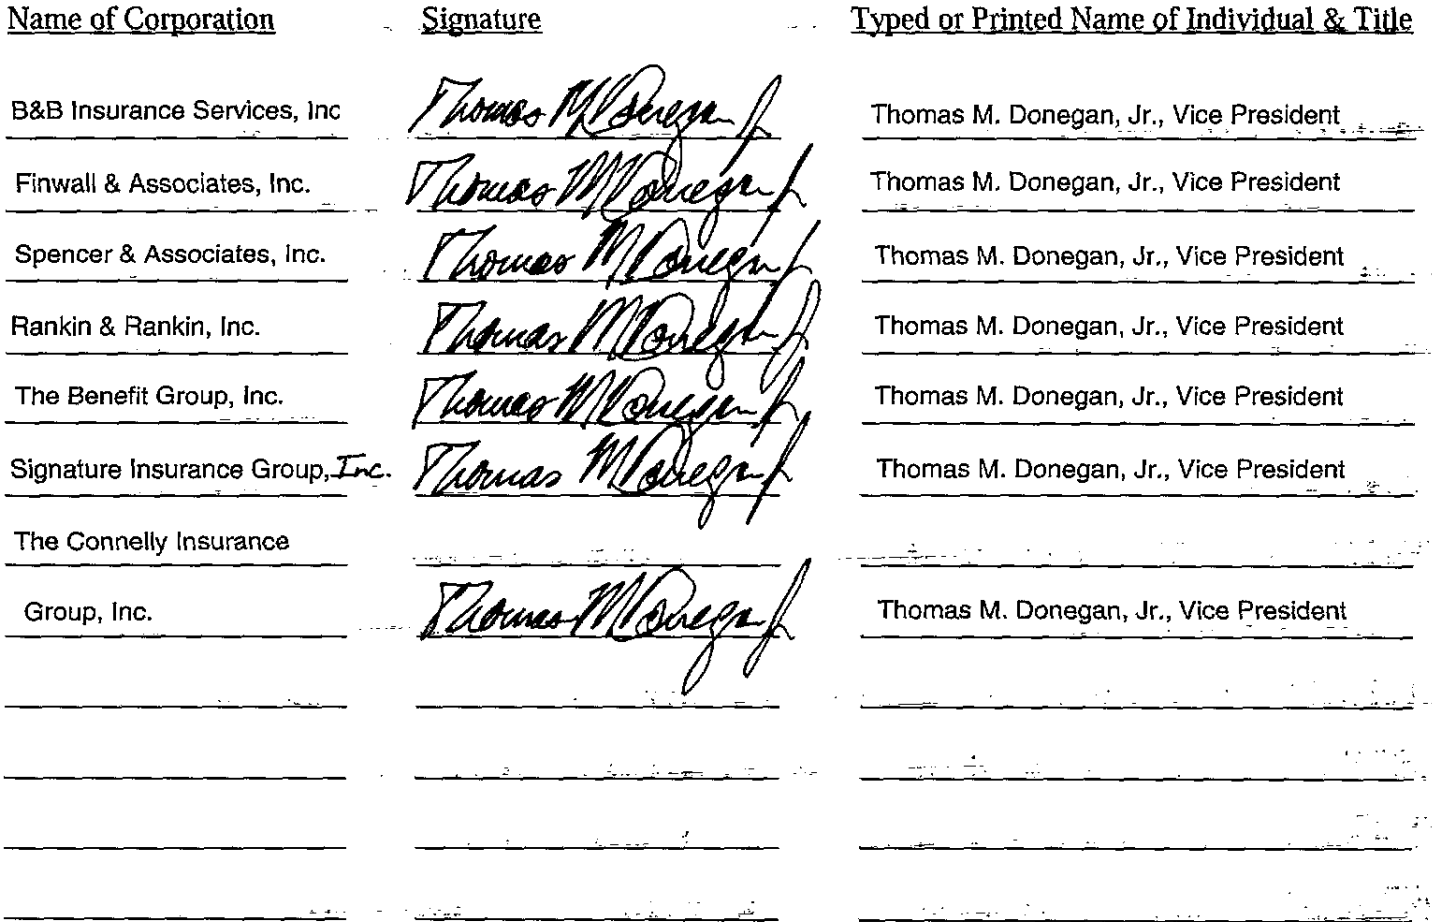 Name of Corporation Signature Typed or Printed Name of Individual & Title
B&B Insurance Services, Inc Thomas M Donegan Jr Thomas M. Donegan, Jr., Vice President
Finwall & Associates, Inc. Thomas M Donegan Jr Thomas M. Donegan, Jr., Vice President
Spencer & Associates, Inc. Thomas M Donegan Jr Thomas M. Donegan, Jr., Vice President
Rankin & Rankin, Inc. Thomas M Donegan Jr Thomas M. Donegan, Jr., Vice President
The Benefit Group, Inc. Thomas M Donegan Jr Thomas M. Donegan, Jr., Vice President
Signature Insurance Group, Inc. Thomas M Donegan Jr Thomas M. Donegan, Jr., Vice President
The Connelly Insurance
Group, Inc. Thomas M Donegan Jr Thomas M. Donegan, Jr., Vice President